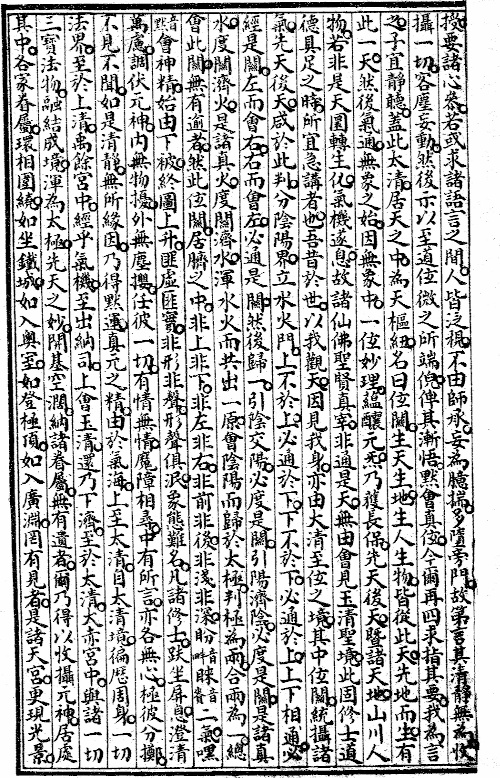 授要諸心卷若或求諸語言之間人皆泛視不由師承妄為臆揣多墮旁門故第言其清靜無為收
攝一切客塵妄動然後示以至道位微之所端倪俾其漸悟默會真位今爾再四求指其要我為言
之子宜靜聽蓋此太清居天之中為天樞紐名曰位關生天生地生人生物皆從此天先地而生有
此一天然後氣通無象之始因無象中一位妙理蘊釀元炁乃獲長保先天後天暨諸天地山川人
物若非是天圍轉生化氣機遂息故諸仙佛聖賢真宰非通是天無由會見玉清聖境此固修士道
德真足之時所宜急講者也吾昔於世以我觀天因見我身亦由大清至位之境其中位關統攝諸
氣先天後天咸於此判分陰陽界立水火門上不於上必通於下下不於下必通於上上下相通必
經是關左而會右右而會左必通是關然後歸一引陰交陽必度是關引陽濟陰必度是關是諸真
水度關濟火是諸真火度關濟水渾水火而共出一原會陰陽而歸於太極判極為兩合兩為一總
會此關無有逾者然此位關居臍之中非上非下非左非右非前非後非淺非深盼音睞眷音一氣嘿
音會神精始由下被終圖上升匪虛匪實非形非聲形聲俱泯象態難名凡諸修士趺坐屏息澄清
萬慮調伏元神內無物擾外無塵攖任彼一切有情無情魔障相尋中有所言亦各無心極彼分擲
不見不聞如是清靜無所緣因乃得默運真元之精由於氣海上至太清自太清境徧歷周身一切
法界至於上清禹餘宮中經乎氣機至出納司上會玉清還乃下濟至於太清大赤宮中與諸一切
三寶法物融結成璜渾為太極先天之妙開基空濶納諸眷屬無有遺者爾乃得以收攝元神居處
其中各家眷屬環相圍繞如坐鐵城如入奧室如登極頂如入廣淵罔有見者是諸天宮更現光景